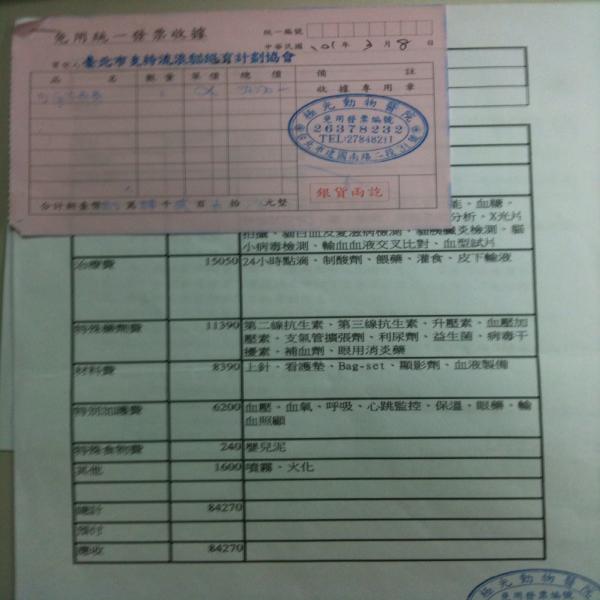 免用統一發票收據
統一編號
中華民國 101年 3月 8日
買受人 臺北市支持流浪貓絕育計劃協會
品名 數量 單價 總價 備註
收據專用章
極光動物醫院
免用發票編號
26378232
TEL:27848211
銀貨兩訖
合計新臺幣 萬 千 百 拾 元整
能、血糖、
分析、X光片
拍攝、貓白血及愛滋病檢測、貓胰臟炎檢測、貓
小病毒檢測、輸血血液交叉比對、血型試片
治療費 15050 24小時點滴、制酸劑、餵藥、灌食、皮下輸液
特殊藥劑費 11390 第二線抗生素、第三線抗生素、升壓素、血壓加
壓素、支氣管擴張劑、利尿劑、益生菌、病毒干
擾素、補血劑、眼用消炎藥
材料費 8390 上針、看護墊、Bag-set、顯影劑、血液製備
特別加護費 6200 血壓、血氧、呼吸、心跳監控、保溫、眼藥、輸
血照顧
特殊食物費 240 嬰兒泥
其他 1600 噴霧、火化
總計 84270
預付
應收 84270
極光動物醫院
免用發票編號